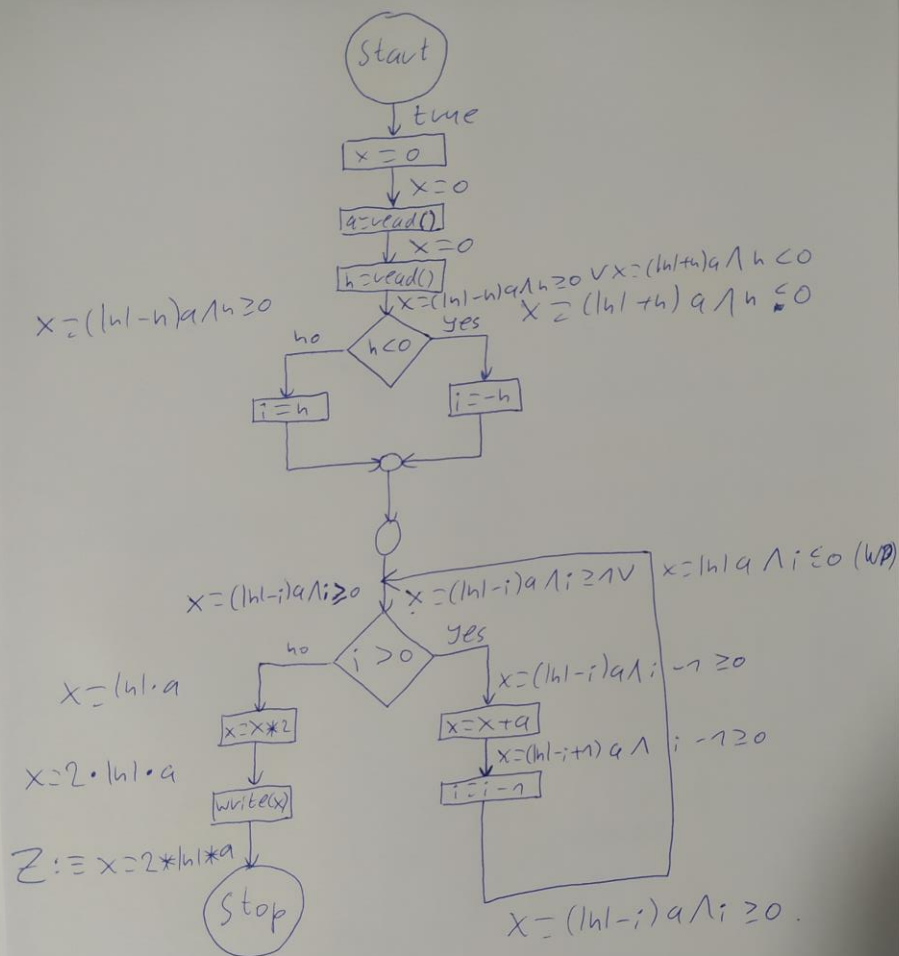 Start
true
x = 0
x=0
a=read()
x=0
n=read()
x=(|n|-n)a∧n≥0 ∨ x=(|n|+n)a∧n<0
x=(|n|-n)a∧n≥0
x=(|n|+n)a∧n≤0
no
n<0
yes
i=n
i=-n
x=|n|a∧i≤0 (WP)
x=(|n|-i)a∧i≥0
x=(|n|-i)a∧i≥1∨
no
i>0
yes
x=(|n|-i)a∧i-1≥0
x=|n|·a
x=x*2
x=x+a
x=(|n|-i+1)a∧i-1≥0
x=2·|n|·a
write(x)
i=i-1
Z:≡x=2*|n|*a
Stop
x=(|n|-i)a∧i≥0.